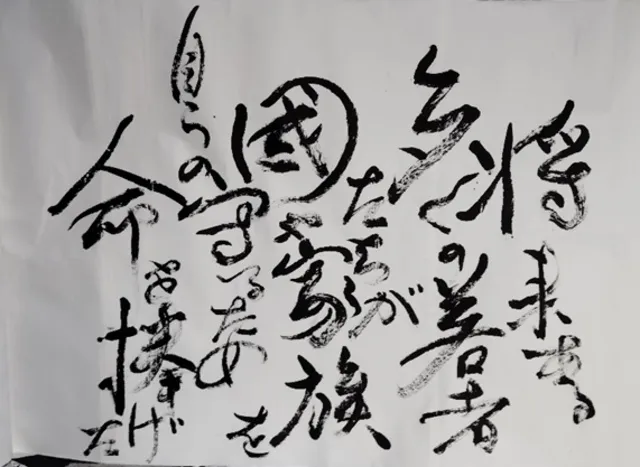 将来ある
多くの若者
たちが
國や家族を
守る為
自らの
命を捧げた